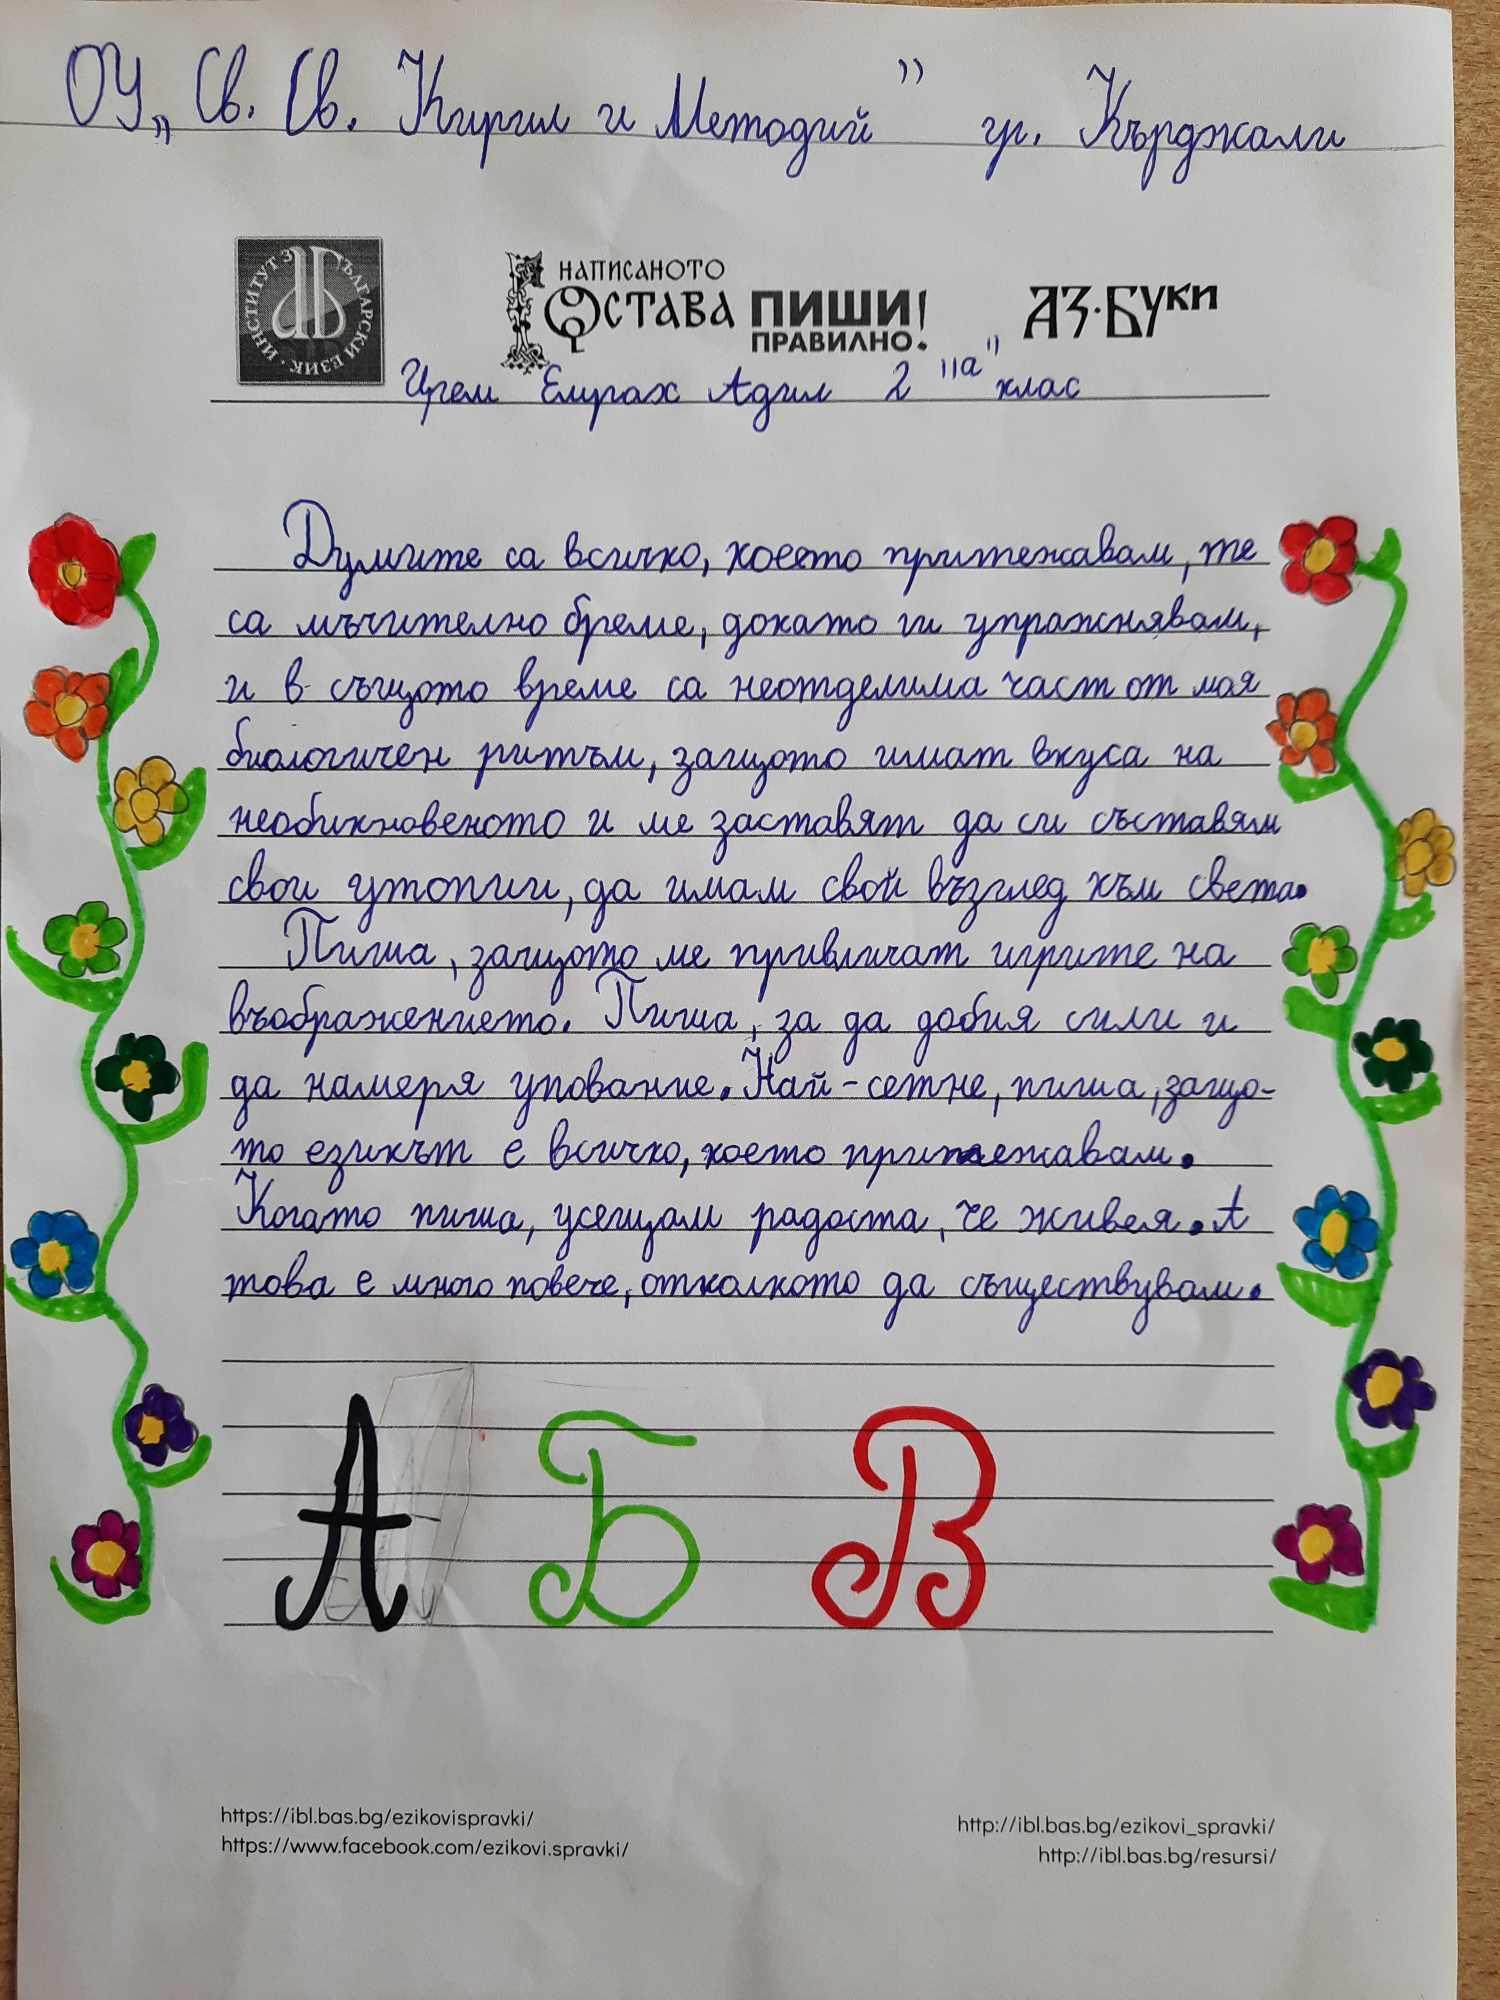 ОУ „Св. Св. Кирил и Методий" гр. Кърджали
ИНСТИТУТ ЗА БЪЛГАРСКИ ЕЗИК
НАПИСАНОТО
ОСТАВА ПИШИ
ПРАВИЛНО!
АЗ·БУКИ
Ирем Емрах Адил 2 "а" клас
Думите са всичко, което притежавам, те
са мъчително бреме, докато ги упражнявам,
и в същото време са неотделима част от моя
биологичен ритъм, защото имат вкуса на
необикновеното и ме заставят да си съставям
свои утопии, да имам свой възглед към света.
Пиша, защото ме привличат игрите на
въображението. Пиша, за да добия сили и
да намеря упование. Най-сетне, пиша, защо-
то езикът е всичко, което притежавам.
Когато пиша, усещам радостта, че живея. А
това е много повече, отколкото да съществувам.
А Б В
https://ibl.bas.bg/ezikovispravki/
https://www.facebook.com/ezikovi.spravki/
http://ibl.bas.bg/ezikovi_spravki/
http://ibl.bas.bg/resursi/